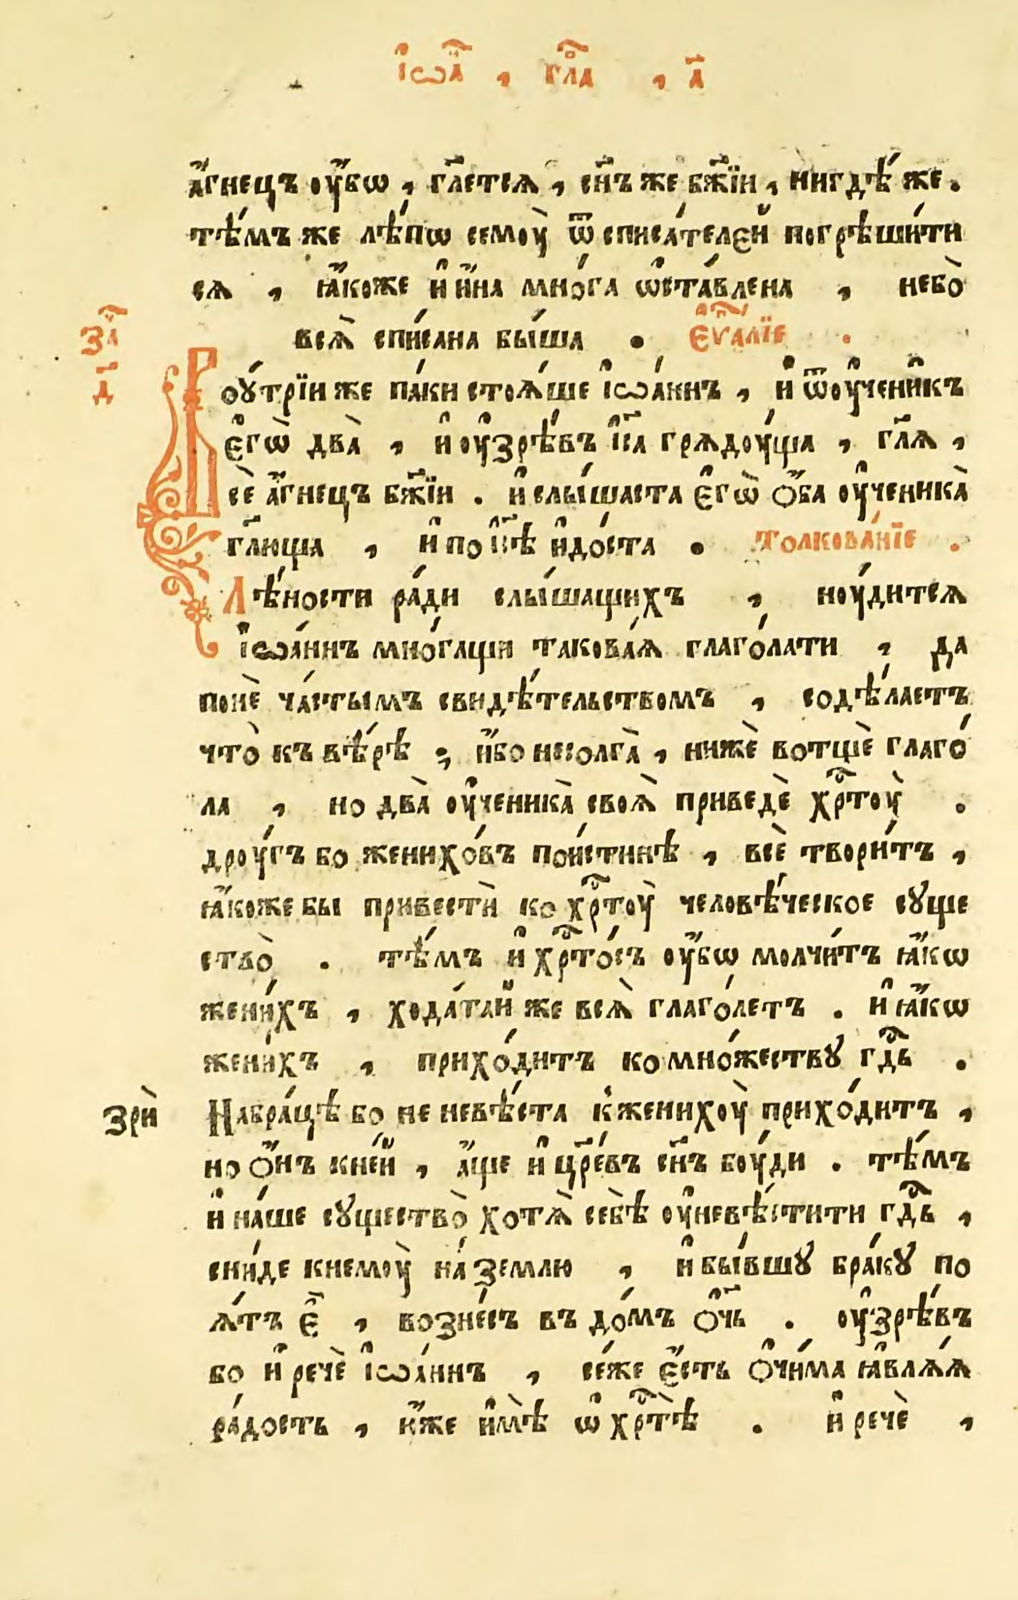 і҆ѡ҃а , гл҃а , а҃
а҆́гнецъ оу҆́бѡ , гл҃етсѧ , сн҃ъ же бж҃їи , нигдѣ́ же .
тѣ́мъ же лѣ́пѡ семоу̀ ѿ списа́телєй погрѣши́ти
сѧ , ꙗ҆́коже и҆ и҆́на мно́га ѡ҆ста́влена , небо̀
всѧ̀ списана бы́ша . єѵа҃лїе .
за҃ д҃
Воу́трїи же па́ки стоѧ́ше і҆ѡа́ннъ , и҆ ѿ оу҆чени́къ
є҆гѡ̀ два̀ , и҆ оу҆зрѣ́въ і҆с҃а грѧдоу́ща , гл҃ѧ ,
сѐ а҆́гнецъ бж҃їи . и҆ слы́шаста є҆гѡ̀ ѻ҆́ба оу҆ченика̀
гл҃юща , и҆ по і҆с҃ѣ и҆до́ста . толкова́нїе .
Лѣ́ности ра́ди слы́шащихъ , ноу́дитсѧ
і҆ѡа́ннъ мно́гащи такова́ѧ глаго́лати , да
понѐ ча́стымъ свидѣ́тельствомъ , содѣ́лаетъ
что̀ къ вѣ́рѣ ; и҆́бо несолга̀ , нижѐ вотщѐ глаго́
ла , но два̀ оу҆ченика̀ своѧ̀ приведѐ хр҃тоу̀ .
дроу́гъ бо женихо́въ пои́стинѣ , всѐ твори́тъ ,
ꙗ҆́коже бы привестѝ ко хр҃тоу̀ человѣ́ческое суще
ство̀ . тѣ́мъ и҆ хр҃то́съ оу҆́бѡ молчи́тъ ꙗ҆́кѡ
жени́хъ , хода́тай же всѧ̀ глаго́летъ . и҆ ꙗ҆́кѡ
жени́хъ , прихо́дитъ ко мно́жеству гд҃ь .
зрѝ
На бра́цѣ бо не невѣ́ста к҆ женихоу̀ прихо́дитъ ,
но ѻ҆́нъ кне́й , а҆́ще и҆ цр҃е́въ сн҃ъ боу́ди . тѣ́мъ
и҆ на́ше существо̀ хотѧ̀ себѣ̀ оу҆невѣ́стити гд҃ь ,
сни́де кнемоу̀ на́ землю , и҆ бы́вшу бра́ку по
ѧ́тъ є҆̀ , возне́съ въ до́мъ ѻ҆ч҃ь . оу҆зрѣ́въ
бо и҆ речѐ і҆ѡа́ннъ , се́же є҆́сть ѻ҆чи́ма ꙗ҆влѧ́ѧ
ра́дость , ю҆́же и҆мѣ̀ ѡ҆ хр҃тѣ̀ . и҆ речѐ ,